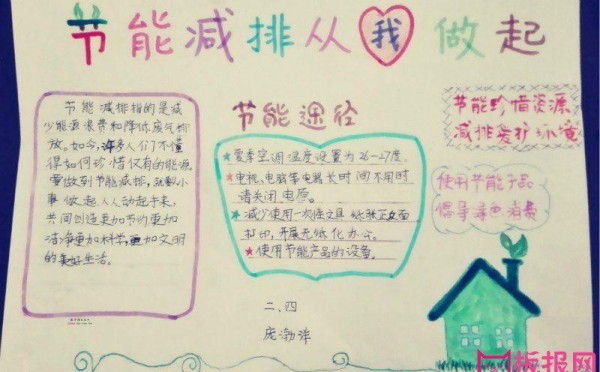 节能减排从我做起
节能减排指的是减
少能源浪费和降低废气排
放。如今,许多人们不懂
得如何珍惜仅有的能源。
要做到节能减排,就从小
事做起人人动起来,
共同创造更加节约更加
洁净更加科学,更加文明
的美好生活。
节能途径
★夏季空调温度设置为26-27度。
★电视、电脑等电器长时间不用时
请关闭电原。
★减少使用一次性文具纸张正反面
打印,开展无纸化办公。
★使用节能产品的设备。
二、四
庞渤洋
节能珍惜资源
减排爱护环境
使用节能产品
倡导绿色消费
板报网